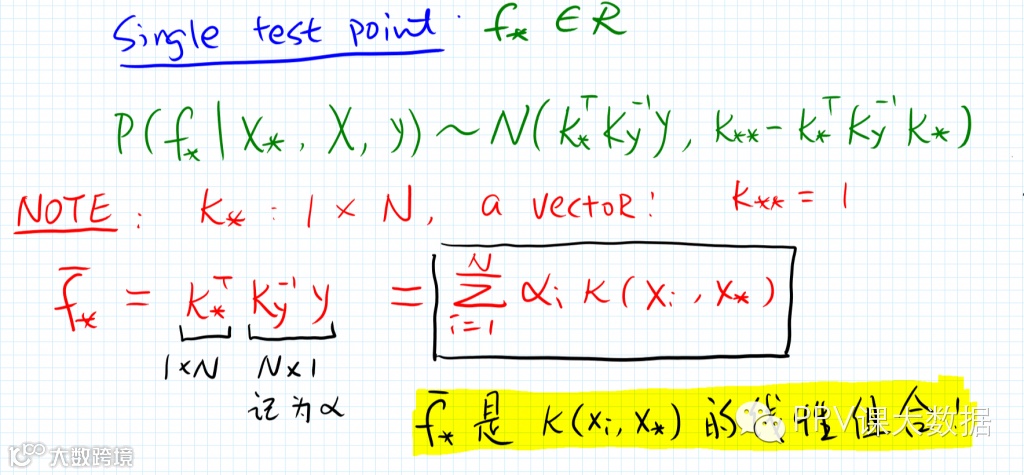 Single test point: f* ∈ R
P(f* | X*, X, y) ~ N(K*ᵀ Ky⁻¹ y, K** - K*ᵀ Ky⁻¹ K*)
NOTE: K* : 1 × N, a vector! K** = 1
f̄* = K*ᵀ Ky⁻¹ y = ∑ᵢ₌₁ᴺ αᵢ K(xᵢ, x*)
1×N N×1
记为α
f̄* 是 K(xᵢ, x*) 的线性组合!
PPV课大数据
大数跨境